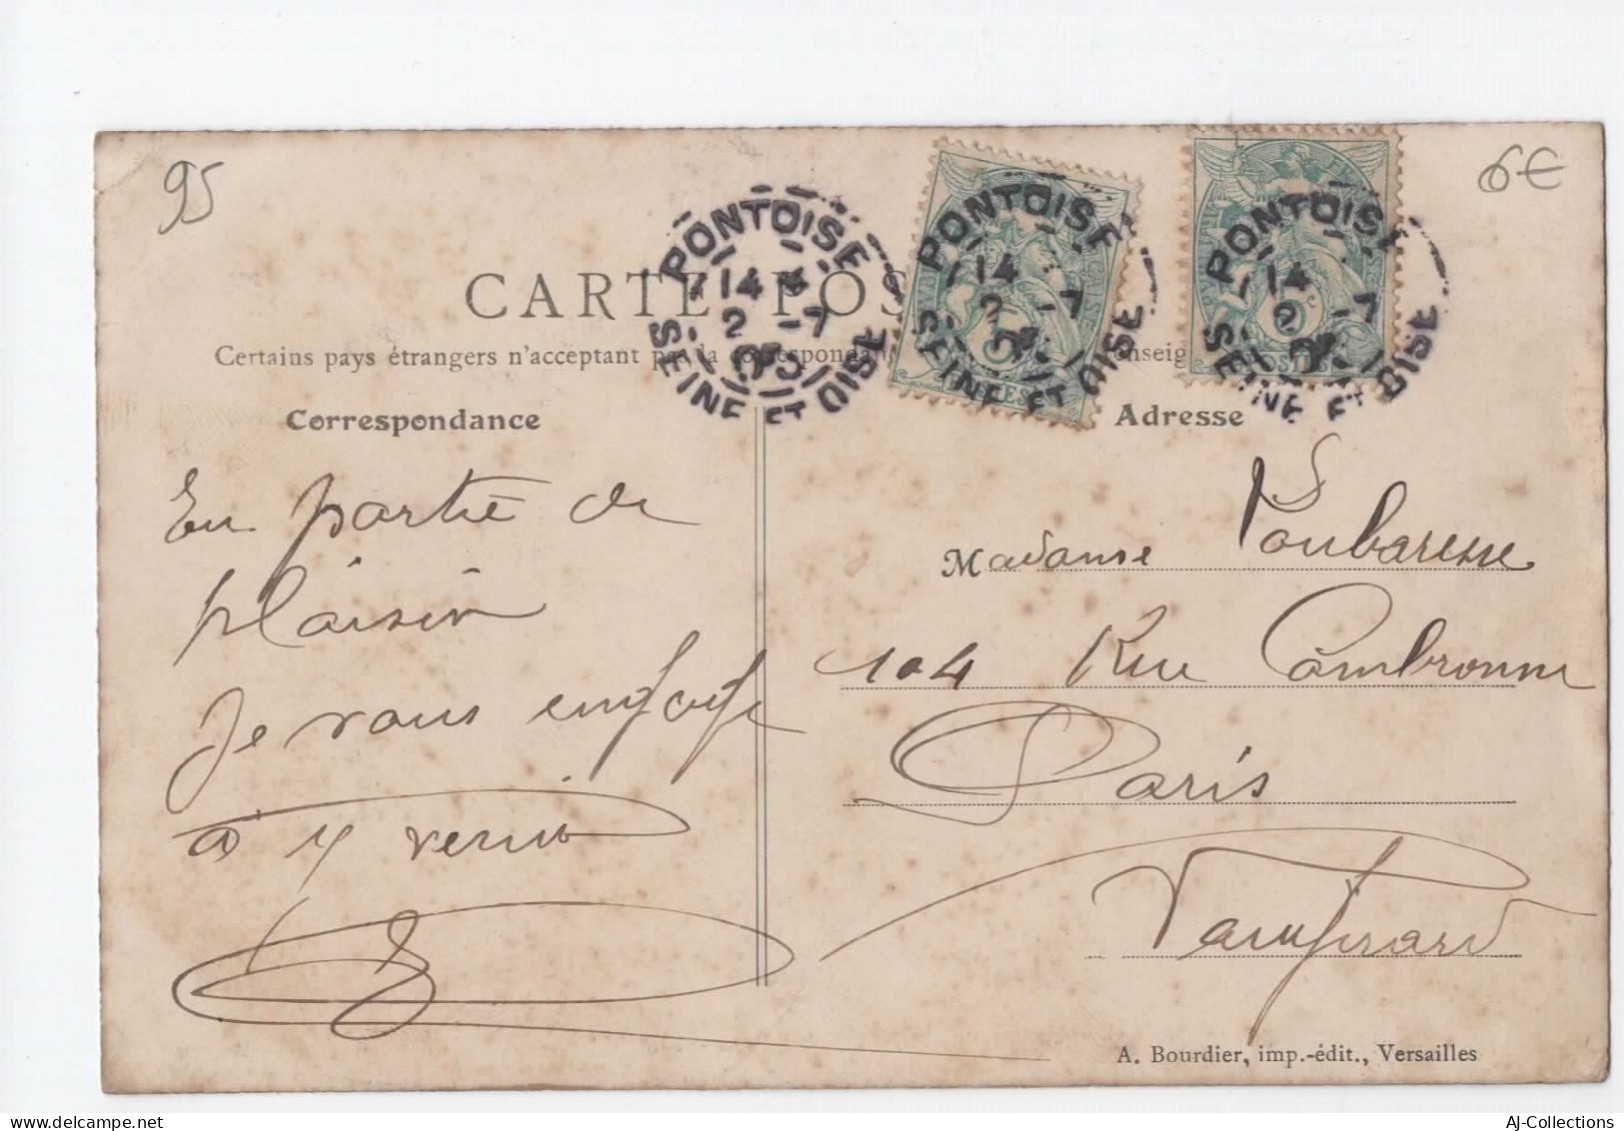 95
6€
PONTOISE
14
2 -7
05
SEINE ET OISE
PONTOISE
14
2 -7
SEINE ET OISE
PONTOISE
14
2 -7
SEINE ET OISE
CARTE POS
Certains pays étrangers n'acceptant pas la correspondan
enseig
Correspondance
Adresse
En partie de
plaisir
Je vous
à y venir
Madame
104 Rue Cambronne
Paris
Vaugirard
A. Bourdier, imp.-édit., Versailles
AJ-Collections